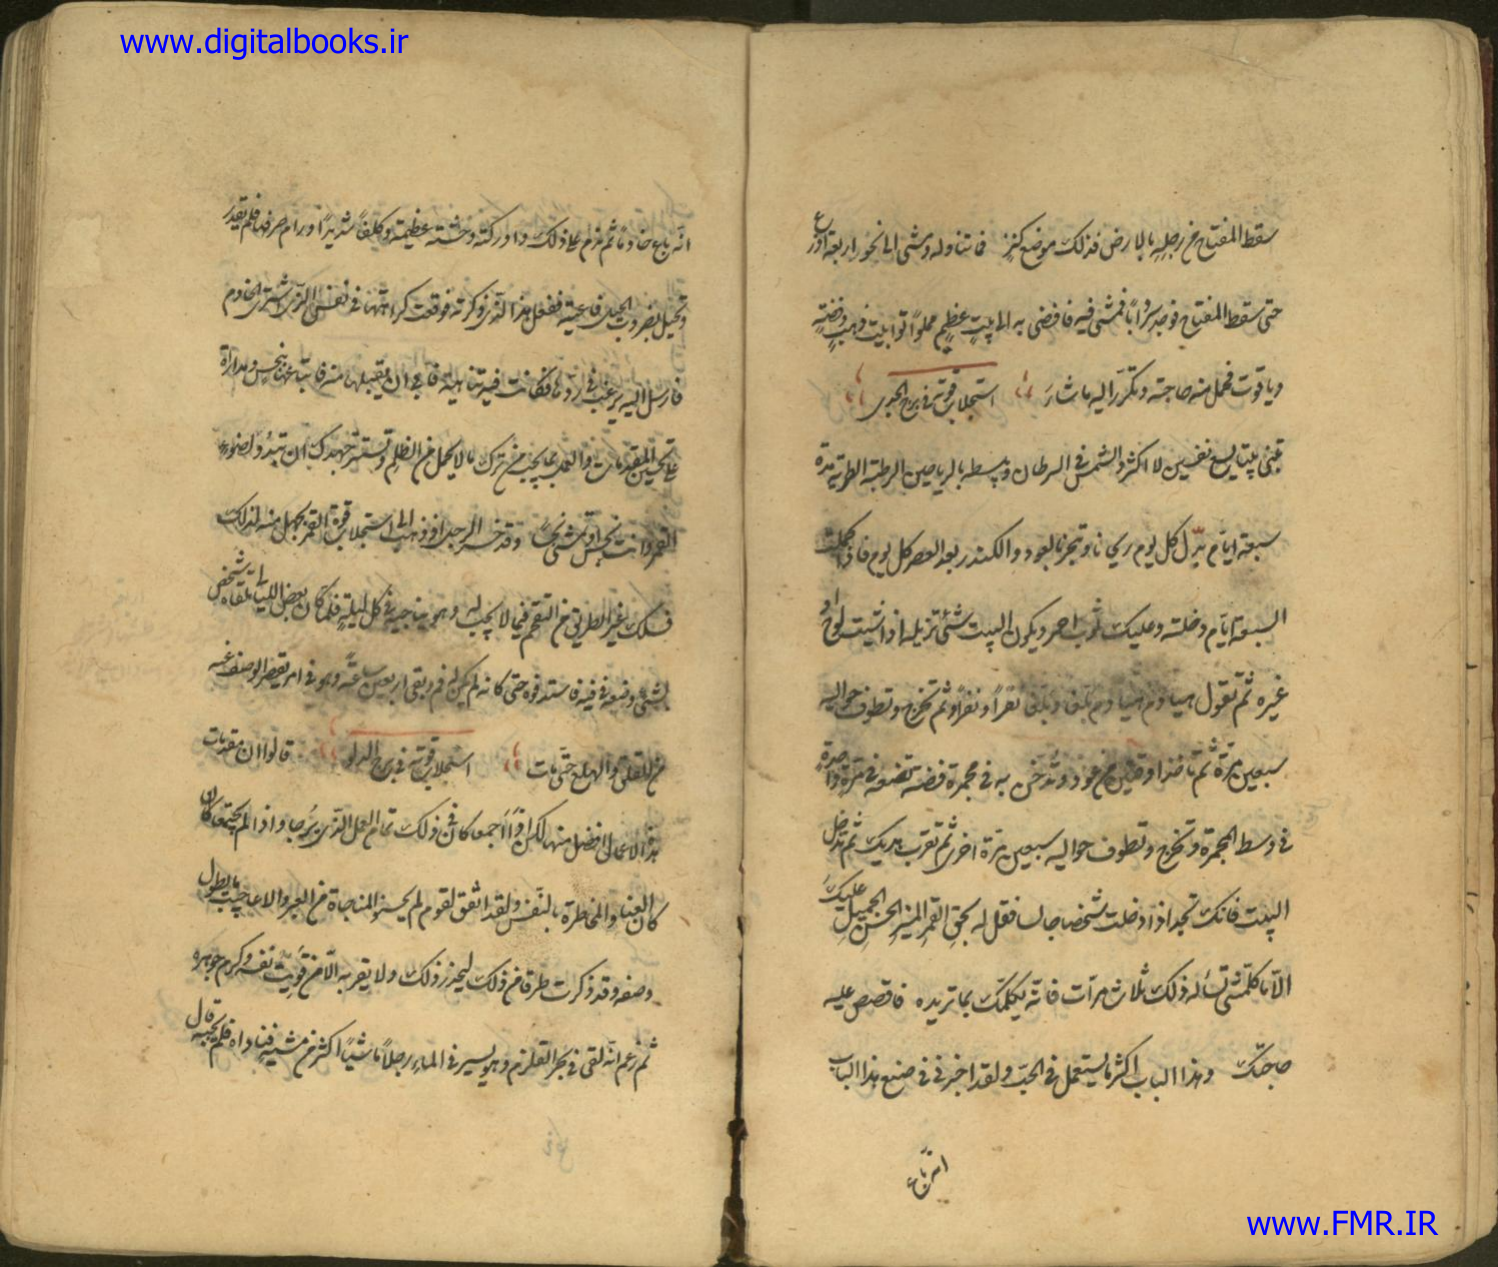 www.digitalbooks.ir
سقط المفتاح من رجله بالارض فذلك موضع كنز فتناوله ومشى الى نحو اربعة اذرع
حتى سقط المفتاح فوجد سربا فمشى فيه فافضى به الى بيت عظيم مملوا توابيت ذهب وفضة
وياقوت فحمل منه حاجته وتكرر اليه ما شاء استجلاب قوته في برج الجدى
تبنى بيتا يسع نفسين لا اكثر والشمس في السرطان وتبسطه بالرياحين الرطبة الطرية مدة
سبعة ايام يبدل كل يوم وتبخر بالعود والكندر بعد العصر كل يوم فاذا كملت
السبعة ايام دخلته وعليك ثوب احمر ويكون البيت شئ تزيله اذا شئت لوح او
غيره ثم تقول نقرا ونفراو ثم تخرج وتطوف حواليه
سبعين مرة ثم تاخذ اوقيتين من عود وتدخن به في مجمرة فضة تضعه في مرة واحدة
في وسط المجمرة وتخرج وتطوف حواليه سبعين مرة اخرى ثم تقرب بديك ثم تدخل
البيت فانك تجد اذا دخلت شخصا جالسا فقل له بحق القمر المنير الحسن الجميل عليك
الا ما كلمتنى تسأله ذلك ثلاث مرات فانه يكلمك بما تريده فاقصص عليه
حاجتك وهذا الباب اكثر ما يستعمل في الحب ولقد اخبرنى في صنيع هذا الباب
انه باع
انه باع خادما ثم ندم على ذلك وادركته وحشة عظيمة وكلفا شديدا ورام صرفها فلم يقدر
وتحيل بضروب الحيل فاعيته ففعل هذا الذى ذكرته فوقعت كراهتها في نفس الذى اشترى الخادم
فارسل اليه يرغب في ردها فكانت فيه تناهية فابى ان يقبلها منه
القمر وانت نجس او تمشى نجسا وقد خسر الرجل اذ ذهب الى استجلاب قوة القمر بجهل منه لذلك
فسلك غير الطريق من التقمم فيما لا يجب له وهو يناجيه في كل ليلة فلما كان بعض الليالى تلقاه شخص
بشئ وضعه في فيه فاستد فوه حتى كانه لم يكن له فم وبقى اربعين ساعة وهو في امر يقصر الوصف عنه
من القلق والهلع حتى مات استجلاب قوته في برج الدلو قالوا ان مقدمات
هذا الاعمال افضل منها لكن اذا اجمعا كان في ذلك تمام العمل الذى يرجا واذا لم يجتمعا كان
كان العنا والمخاطرة بالنفس ولقد اتفق لقوم لم يحسنوا المناجاة من العبر والاعاجيب ما يطول
وصفه وقد ذكرت طرفا من ذلك ليحذر ذلك ولا يقربه الا من قويت نفسه وكرم جوهره
ثم زعم انه لقى في بحر القلزم وهو يسير في الماء رجلا ماشيا اكثر من مشيه فناداه فلم يجبه قال
www.FMR.IR